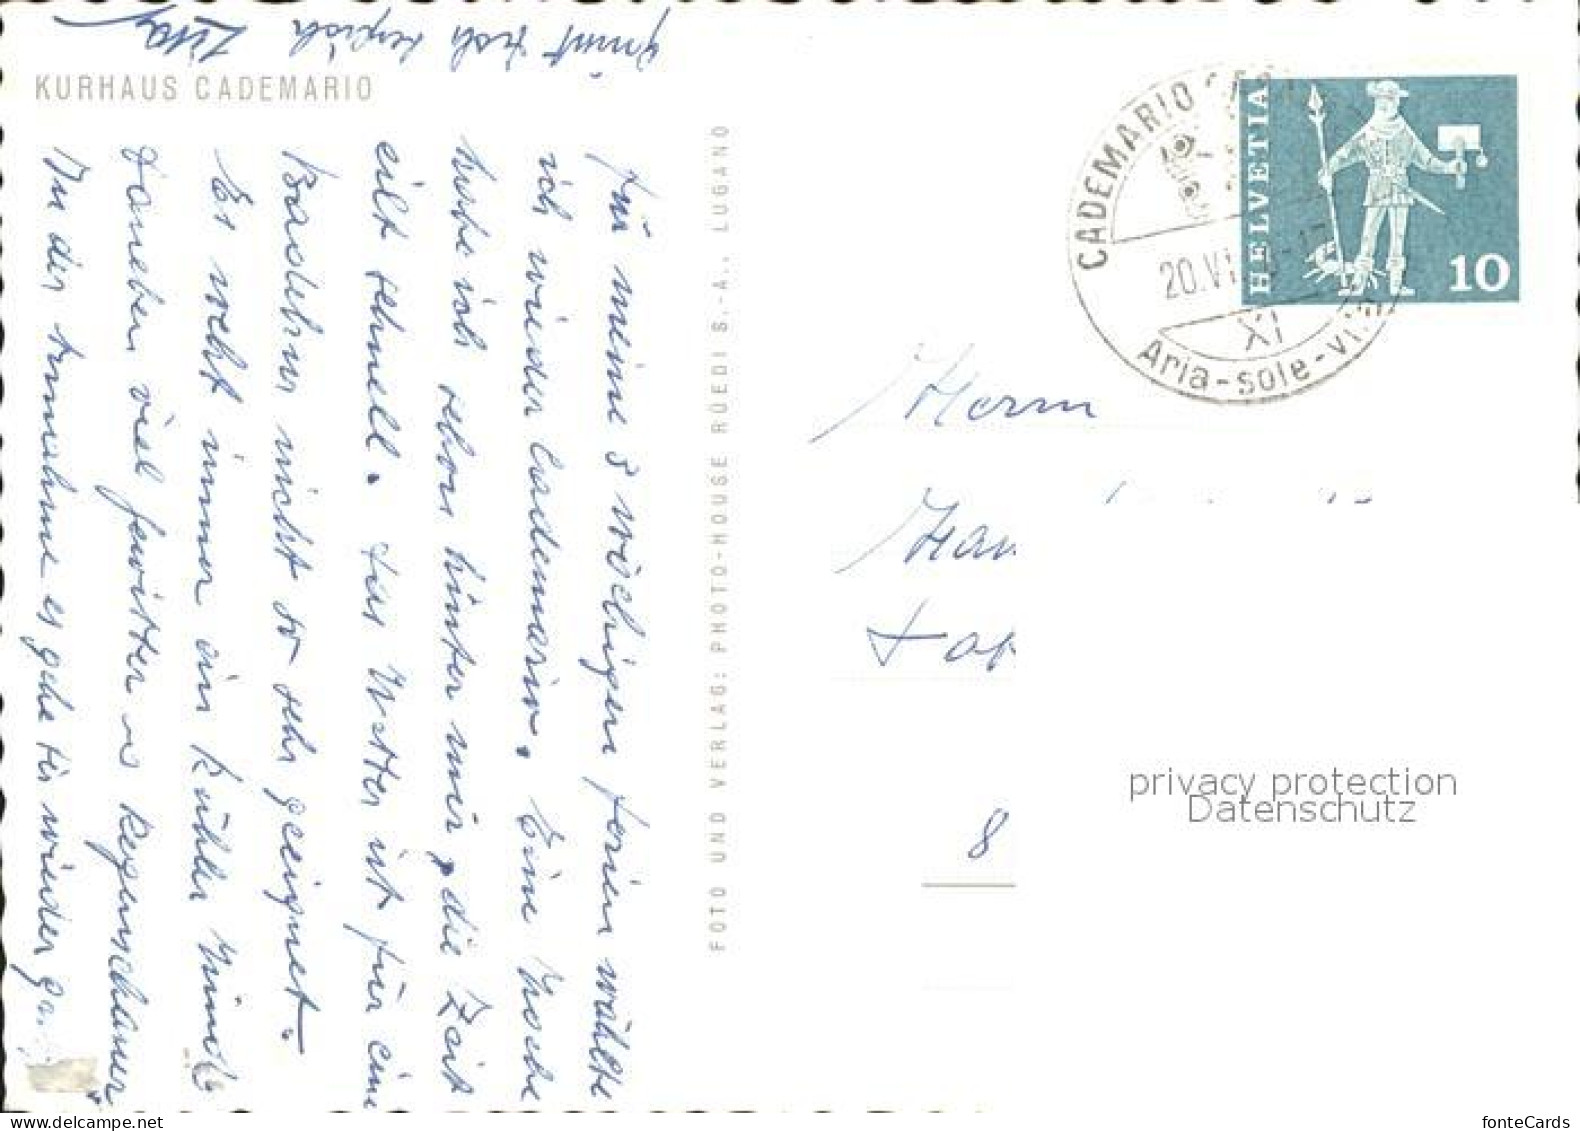 KURHAUS CADEMARIO
Für meine 3 wöchigen Ferien wählte
ich wieder Cademario. Eine Woche
habe ich schon hinter mir, die Zeit
eilt schnell. Das Wetter ist für eine
Badekur nicht so sehr geeignet.
Es weht immer ein kühler Wind
daneben viel Gewitter u Regenschauer
In der Annahme es gehe Dir wieder gut
grüsst Dich herzlich
FOTO UND VERLAG: PHOTO-HOUSE RÜEDI S.-A., LUGANO
CADEMARIO
20.VI
XI
Aria-sole-vi
HELVETIA
10
Herrn
Han
8
privacy protection
Datenschutz
www.delcampe.net
fonteCards